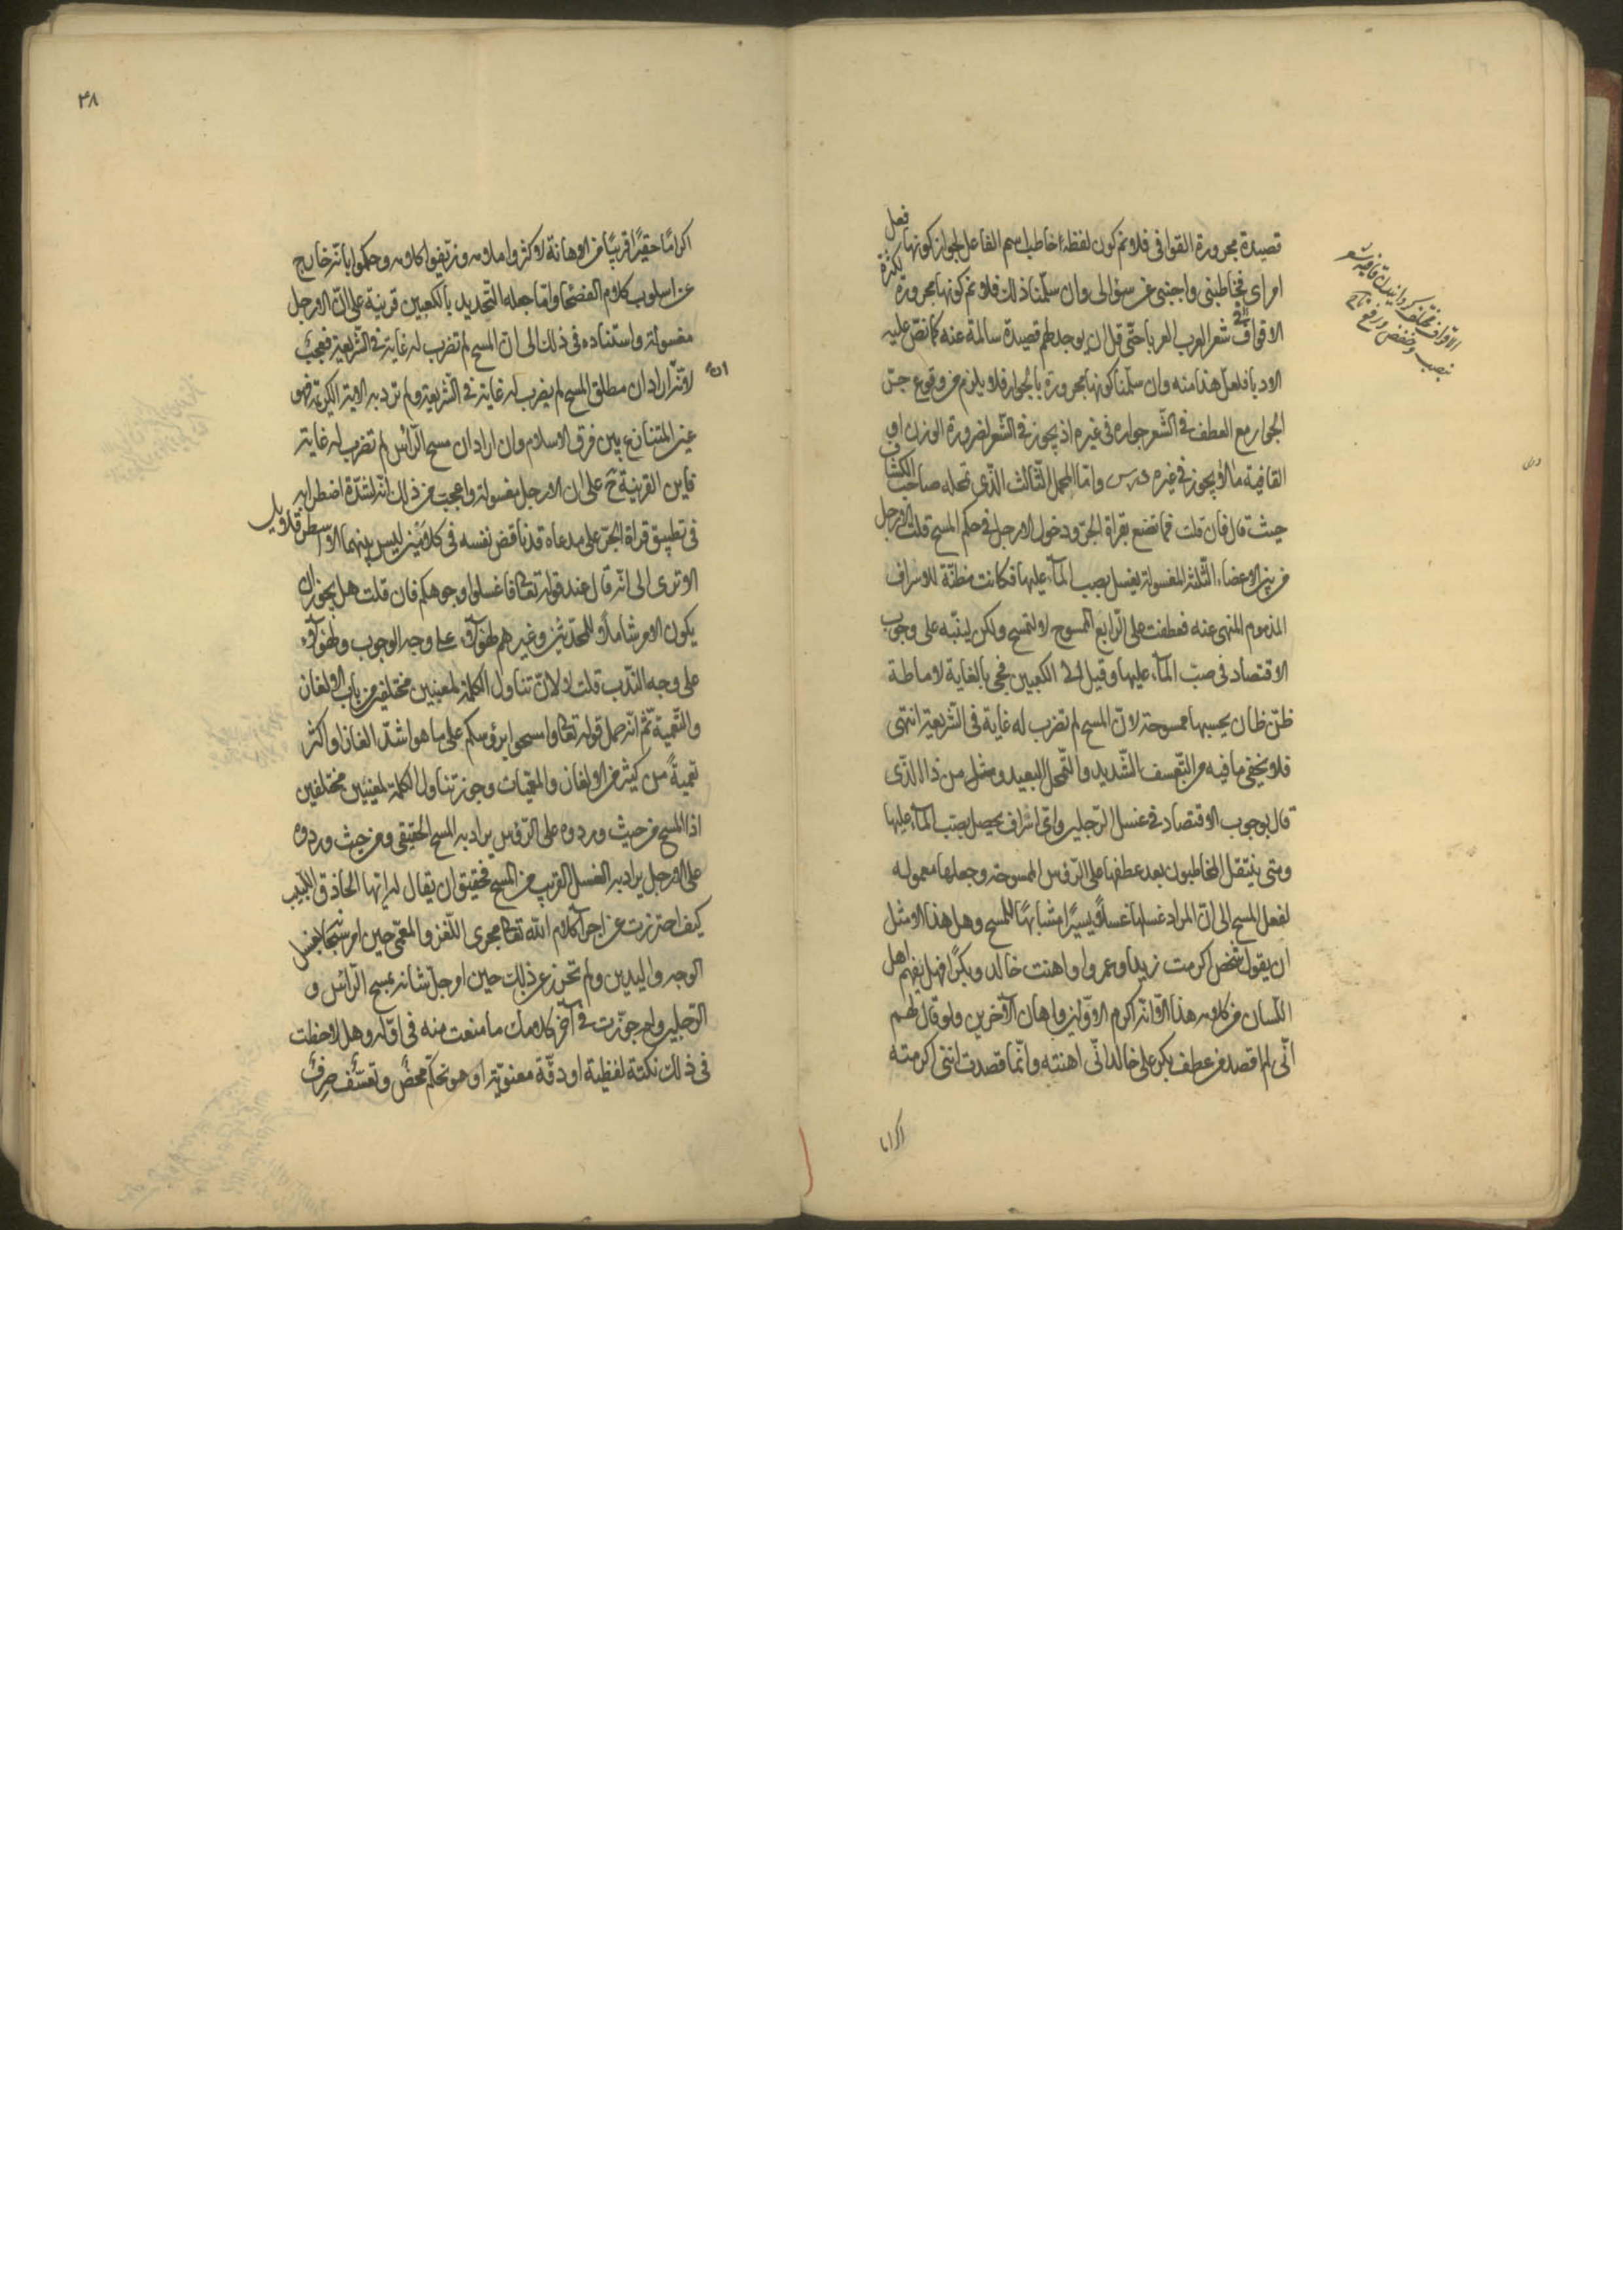 قصيدة مجرورة القوافى فلا نم كون لفظة خاطب اسم الفاعل لجواز كونها فعل
امر اى فخاطبنى واجبنى عن سؤالى وان سلّمنا ذلك فلا نم كونها مجرورة لكثرة
الاقواء فى شعر العرب العرباء حتّى قلّ ان يوجد لهم قصيدة سالمة عنه كما نصّ عليه
الادباء فلعل هذا منه وان سلّمنا كونها مجرورة بالجوار فلا يلزم من وقوع جرّ
الجوار مع العطف فى الشّعر جوازه فى غيره اذ يجوز فى الشّعر لضرورة الوزن او
القافية ما لا يجوز فى غيره درس وامّا المحمل الثّالث الّذى تمحله صاحب الكشاف
حيث قال فان قلت فما تصنع بقراة الجرّ ودخول الارجل فى حكم المسح قلت الارجل
من بين الاعضاء الثّلثة المغسولة يغسل بصب المآء عليها فكانت مظنّة للاسراف
المذموم المنهى عنه فعطفت على الرّابع الممسوح لا لتمسح ولكن لينبّه على وجوب
الاقتصاد فى صبّ المآء عليها وقيل الى الكعبين فجى بالغاية لاماطة
ظنّ ظان يحسبها ممسوحة لانّ المسح لم تضرب له غاية فى الشّريعة انتهى
فلا يخفى ما فيه من التّعسف الشّديد والتّمحل البعيد ومثل من ذا الّذى
قال بوجوب الاقتصاد فى غسل الرّجلين واىّ اسراف يحصل بصبّ المآء عليها
ومتى ينتقل المخاطبون بعد عطفها على الرّؤس الممسوحة وجعلها معمولة
لفعل المسح الى انّ المراد غسلها غسلًا يسيرًا مشابهًا للمسح وهل هذا الا مثل
ان يقول شخص اكرمت زيدا وعمروا واهنت خالد وبكرًا فهل يفهم اهل
اللّسان من كلامه هذا الّا انّه اكرم الاوّلين واهان الآخرين ولو قال لهم
انّى لم اقصد من عطف بكر على خالد انّى اهنته وانّما قصدت انّنى اكرمته
اكراما
الاقواء
بنصب وخفض ورفع
٣٨
اكرامًا حقيرًا قريبًا من الاهانة لاكثروا ملامه وزيّفوا كلامه وحكموا بانّه خارج
عن اسلوب كلام الفصحاء وامّا جعله التّحديد بالكعبين قرينة على انّ الارجل
مغسولة واستناده فى ذلك الى انّ المسح لم تضرب له غاية فى الشّريعة فعجيب
لانّه ان اراد ان مطلق المسح لم يضرب له غاية فى الشّريعة ولم ترد به الاية الكريمة فهو
عين المتنازع بين فرق الاسلام وان اراد ان مسح الرّأس لم تضرب له غاية
فاين القرينة ح على ان الارجل مغسولة واعجب من ذلك انّه لشدّة اضطرابه
فى تطبيق قراة الجرّ على مدعاه قد ناقض نفسه فى كلامين ليس بينهما الا اسطر قلايل
الا ترى الى انّه قال عند قوله تعالى فاغسلوا وجوهكم فان قلت هل يجوز ان
يكون الامر شاملًا للمحدثين وغيرهم لهؤلآء على وجه الوجوب ولهؤلآء
على وجه النّدب قلت لا لانّ تناول الكلمة لمعنيين مختلفين من باب الالغاز
والتّعمية ثمّ انّه حمل قوله تعالى وامسحوا برؤسكم على ما هو اشدّ الغازا واكثر
تعميةً من كثير من الالغاز والمعميات وجوز تناول الكلمة لمعنيين مختلفين
اذ المسح من حيث وروده على الرّؤس يراد به المسح الحقيقى ومن حيث وروده
على الارجل يراد به الغسل القريب من المسح فحقيق ان يقال له ايّها الحاذق اللّبيب
كيف احترزت عن اجرآء كلام الله تعالى مجرى اللّغز والمعمّى حين امر سبحانه بغسل
الوجه واليدين ولم تحرز عن ذلك حين امر جلّ شانه بمسح الرّأس و
الرّجلين ولم جوّزت فى آخر كلامك ما منعت منه فى اوّله وهل لاحظت
فى ذلك نكتة لفظية او دقّة معنويّة او هو تحكّم محضٌ وتعسّف صرفٌ